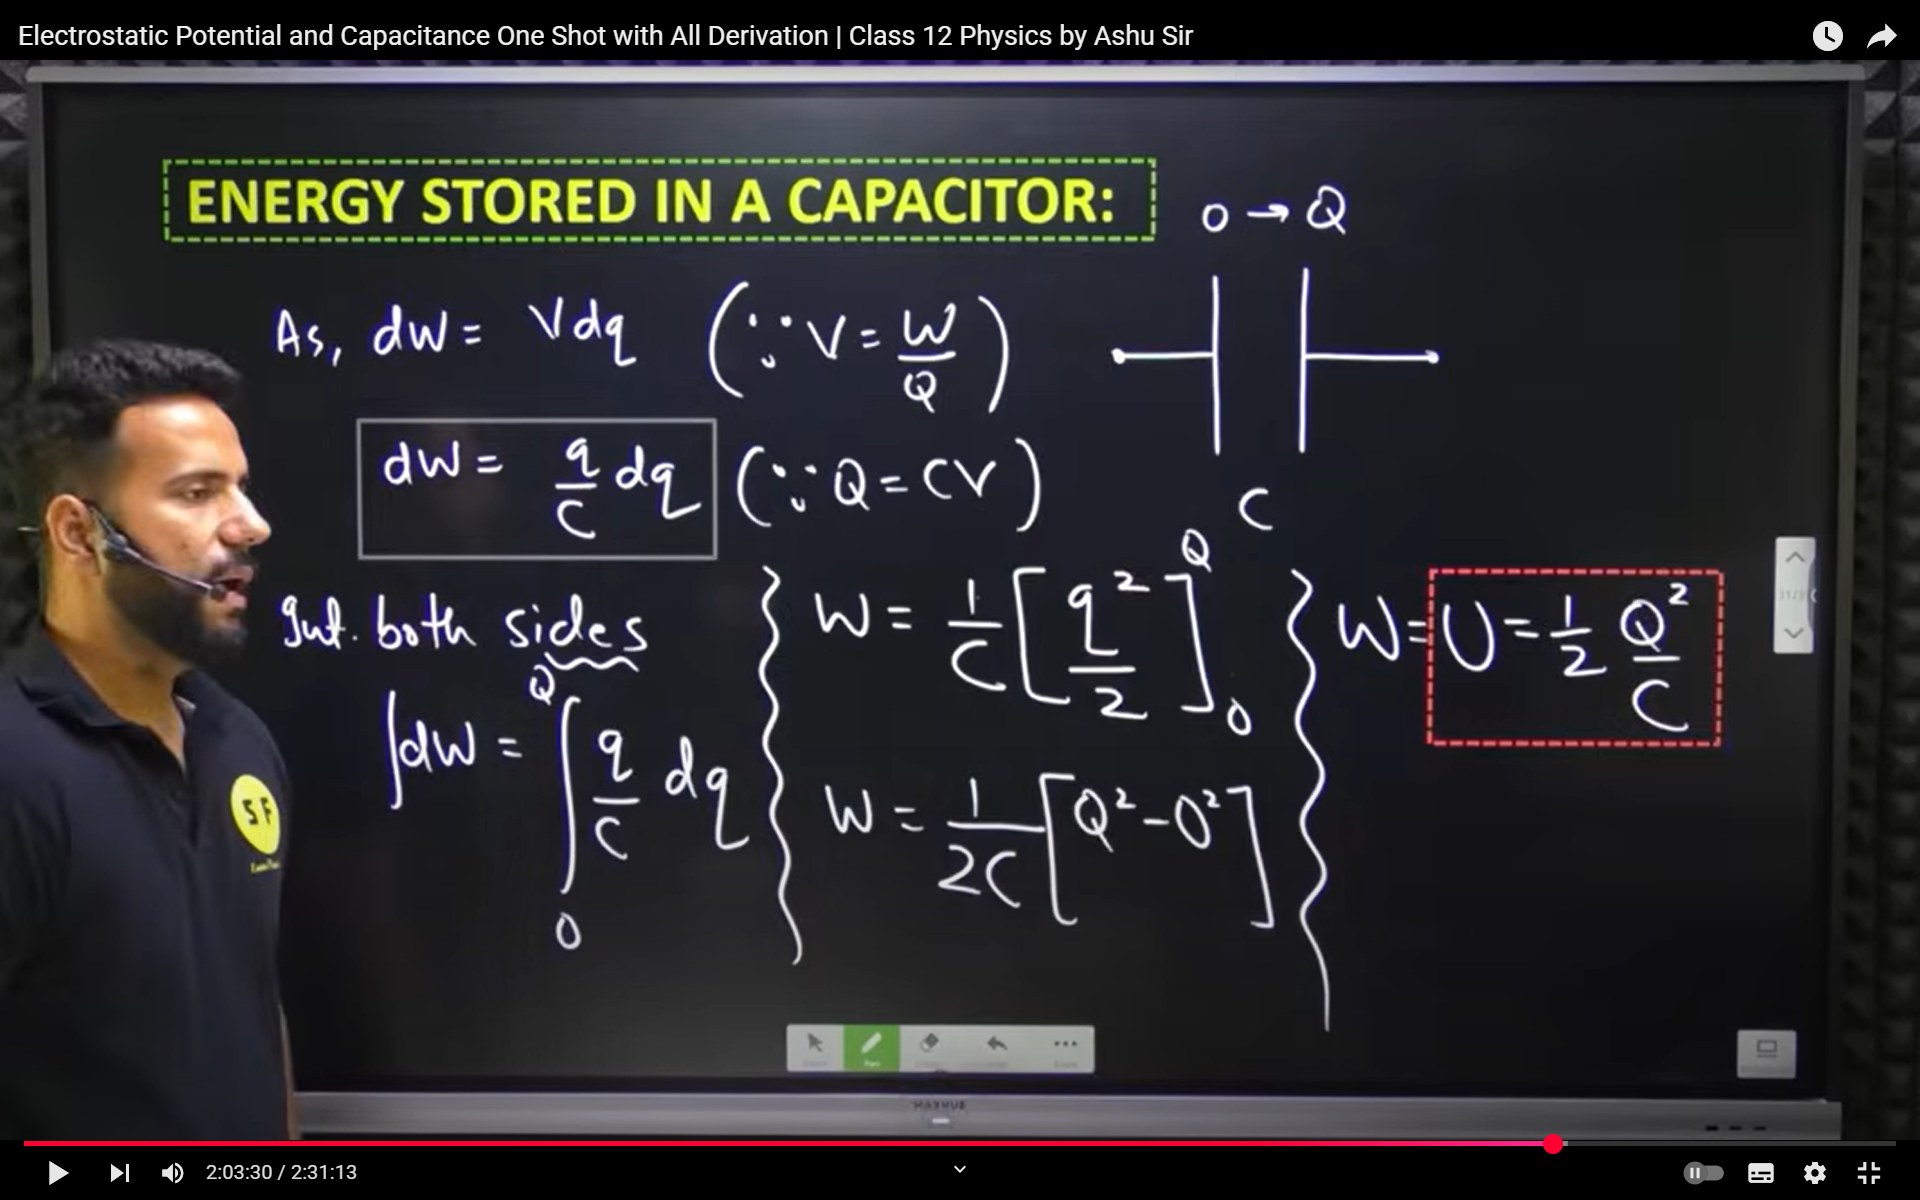 Electrostatic Potential and Capacitance One Shot with All Derivation | Class 12 Physics by Ashu Sir
ENERGY STORED IN A CAPACITOR:
0 → Q
As, dW = Vdq (∵ V = W/Q)
dW = q/C dq (∵ Q = CV)
C
Int. both sides
∫dW = ∫₀^Q q/C dq
W = 1/C [q²/2]₀^Q
W = 1/2C [Q² - 0²]
W = U = 1/2 Q²/C
SF
MAXHUB
2:03:30 / 2:31:13